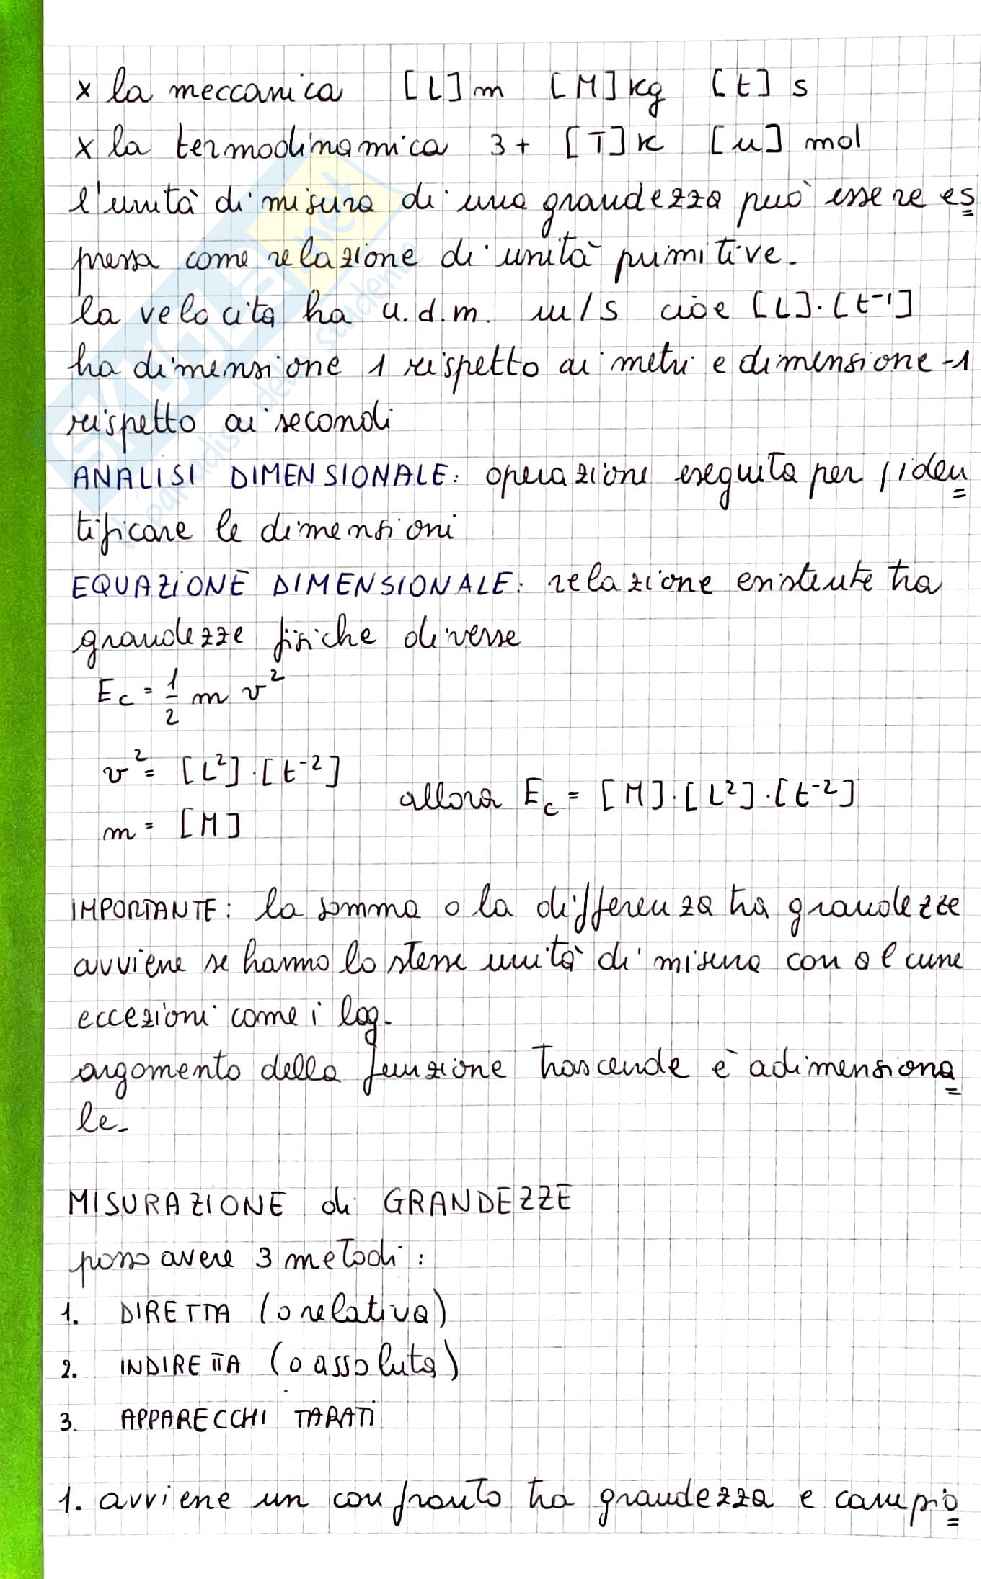 x la meccanica [L] m [M] kg [t] s
x la termodinamica 3+ [T] K [n] mol
l'unità di misura di una grandezza può essere es
pressa come relazione di unità primitive.
la velocità ha u.d.m. m/s cioè [L]·[t⁻¹]
ha dimensione 1 rispetto ai metri e dimensione -1
rispetto ai secondi
ANALISI DIMENSIONALE: operazione eseguita per iden
tificare le dimensioni
EQUAZIONE DIMENSIONALE: relazione esistente tra
grandezze fisiche diverse
Ec = 1/2 m v²
v² = [L²]·[t⁻²]
m = [M] allora Ec = [M]·[L²]·[t⁻²]
IMPORTANTE: la somma o la differenza tra grandezze
avviene se hanno lo stesse unità di misura con alcune
eccezioni come i log.
argomento della funzione trascende è adimensiona
le.
MISURAZIONE di GRANDEZZE
posso avere 3 metodi:
1. DIRETTA (o relativa)
2. INDIRETTA (o assoluta)
3. APPARECCHI TARATI
1. avviene un confronto tra grandezza e campio